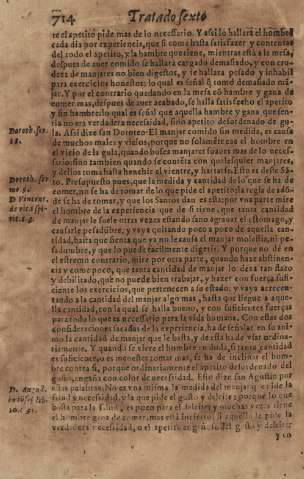 714 Tratado sexto
te el apetito pide mas de lo necessario. Y assi lo hallarà el hombre
cada dia por experiencia, que si come hasta satisfazer y contentar
del todo el apetito, y la hambre que tiene, mientras està a la mesa,
despues de auer comido se hallarà cargado demasiado, y con cru-
dezas de manjares no bien digestos, y se hallarà pesado y inhabil
para exercicios honestos; lo qual es señal q̃ comò demasiado man-
jar. Y por el contrario quedando en la mesa cõ hambre y gana de
comer mas, despues de auer acabado, se halla satisfecho el apetito
y sin hambre: lo qual es señal que aquella hambre y gana que sen-
tia no era verdadera necessidad, sino apetito desordenado de gu-
la. Assi dize san Doroteo: El manjar comido sin medida, es causa
Doroth. ser.
de muchos males y vicios, porque no solamente cae el hombre en
el vicio de la gula, quando busca manjares suaues mas de lo neces-
sario, sino tambien quando se cõtenta con qualesquier manjares,
y dellos toma hasta henchir el vientre, y hartarse. Esto es deste Sã-
to. Presupuesto pues, que la medida y cantidad de lo que se ha de
Doroth. ser
comer, no se ha de tomar de lo que pide el apetito, la regla de adõ-
D. Vincent.
de se ha de tomar, y que los Santos dan es esta: por vna parte mire
el hombre de la experiencia que de si tiene, que tanta cantidad
de manjar le suele otras vezes estando sano agrauar el estomago, y
causarle pesadũbre, y vaya quitando poco a poco de aquella can-
tidad, hasta que sienta que ya no le causa el manjar molestia, ni pe-
sadumbre, y que lo puede facilmente digerir. Y porque no de en
el estremo contrario, mire por otra parte, quando haze abstinen-
cia y come poco, que tanta cantidad de manjar lo dexa tan flaco
y debilitado, que no puede bien trabajar, y hazer con fuerça sufi-
ciente los exercicios, que pertenecen a su estado; y vaya acrecen-
tando a la cantidad del manjar algo mas, hasta que llegue a aque-
lla cantidad, con la qual se halla bueno, y con suficientes fuerças
para todo lo que es necessario para la vida humana. Con estas dos
consideraciones sacadas de la experiencia, ha de señalar en su ani-
mo la cantidad de manjar que le basta, y de esta ha de vsar ordina-
riamente. Y quando se viere el hombre en duda, si tanta cantidad
es suficiente, o es menester tomar mas, se ha de inclinar el hom-
bre contra si, porque ordinariamente el apetito desordenado del
gusto, engaña con color de necessidad. Esto dize san Agustin por
estas palabras: No es vna misma la medida del manjar q̃ pide la
salud y necessidad, y la que pide el gusto y deleite: porque lo que
basta para la salud, es poco para el deleite; y muchas vezes tiene
el hombre gana de comer mas, està incierto, si aquello le pide la
verdadera necessidad, o el apetito engañoso del gusto y deleite